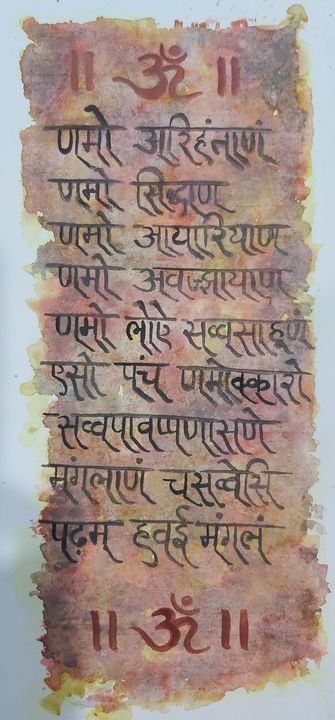 ॥ ॐ ॥
णमो अरिहंताणं
णमो सिद्धाण
णमो आयारियाण
णमो अवज्झायाण
णमो लोऐ सव्वसाहूणं
एसो पंच णमोक्कारो
सव्वपावप्पणासणे
मंगलाणं चसव्वेसि
पढ़म हुवई मंगलं
॥ ॐ ॥